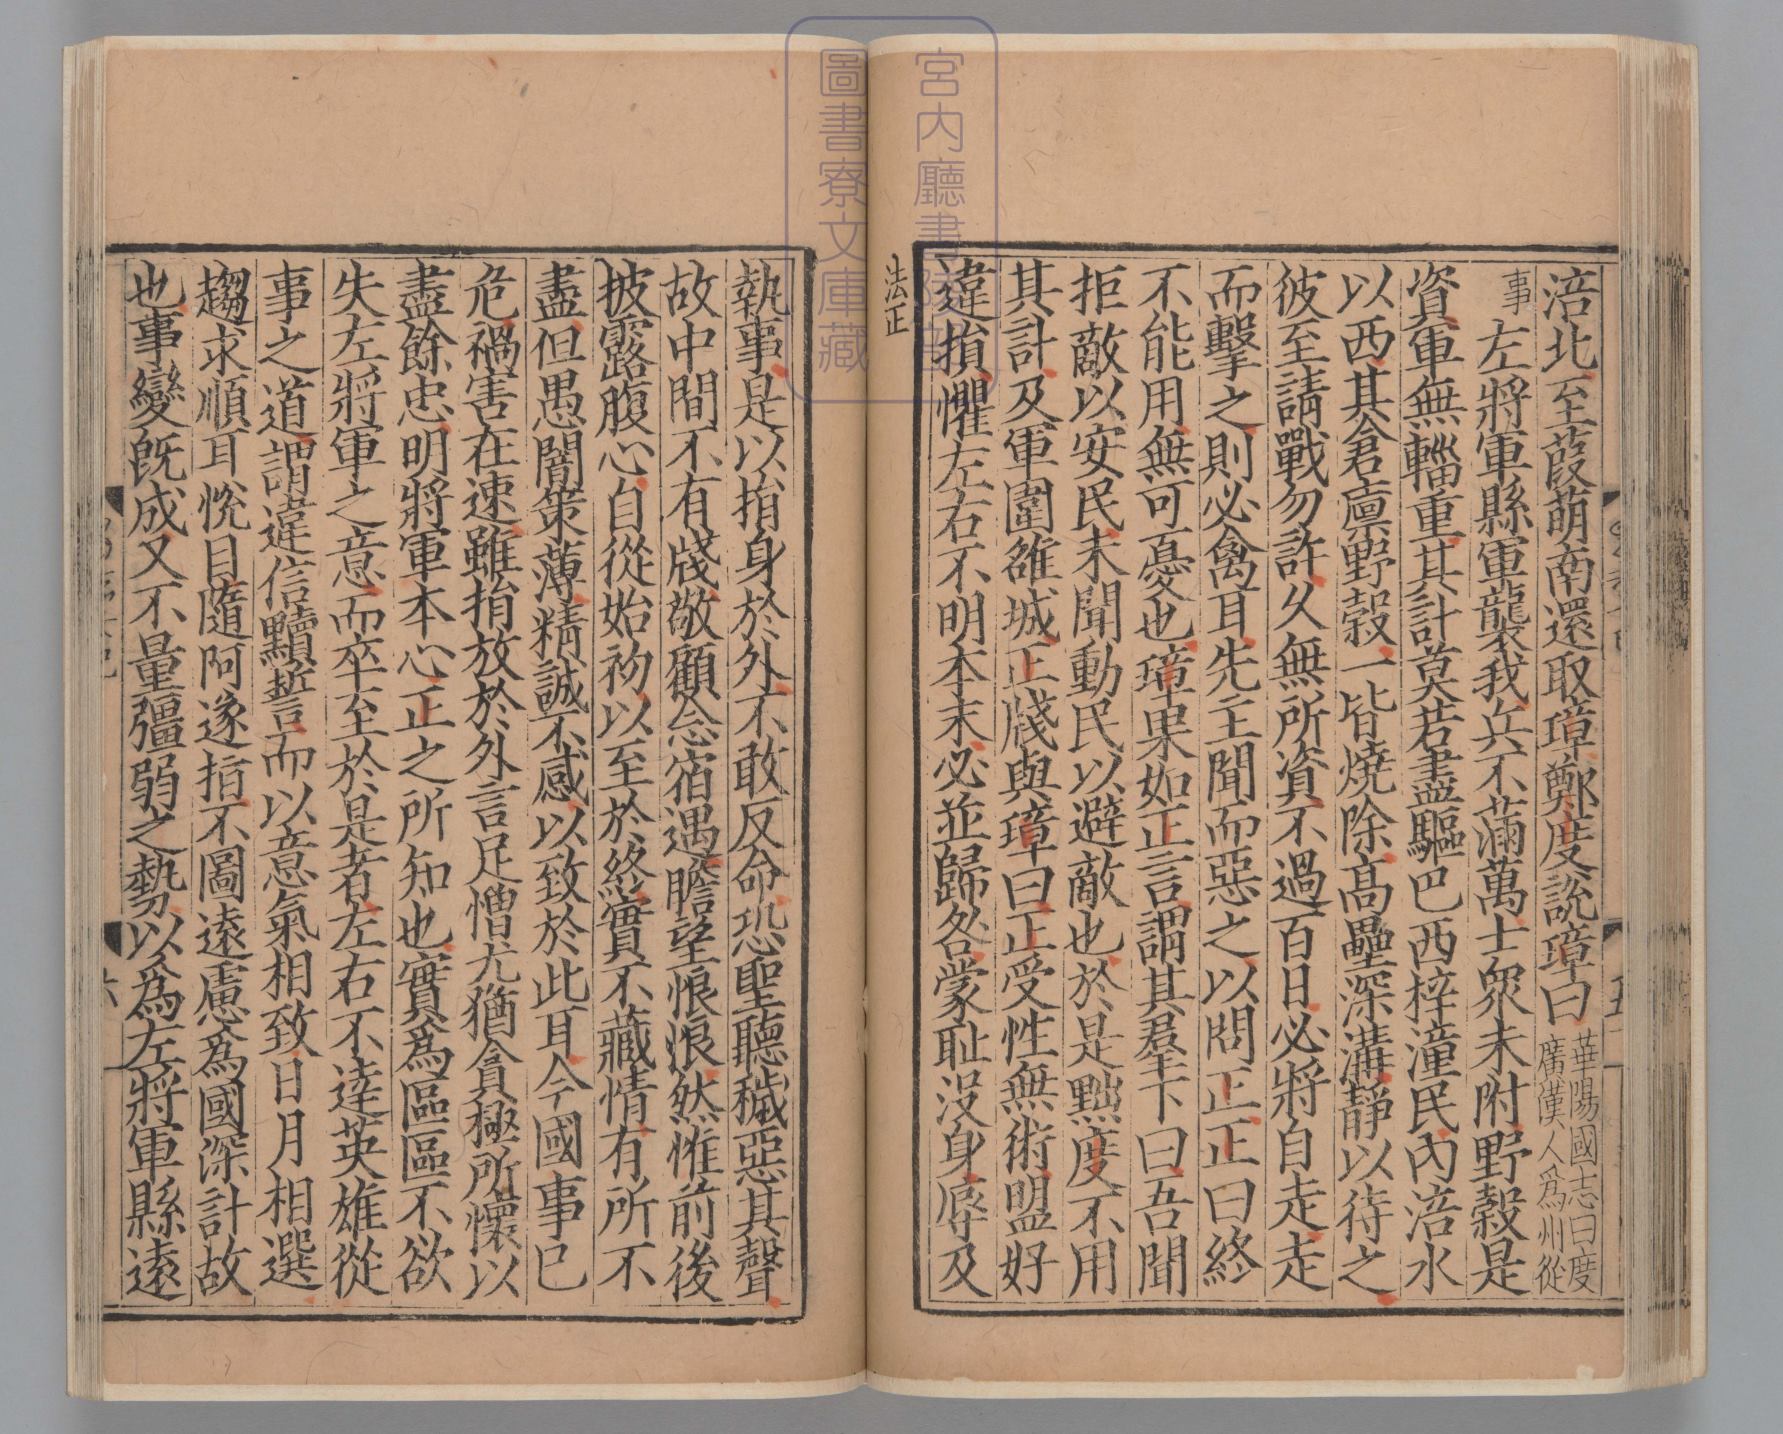 涪北至葭萌南還取璋鄭度說璋曰華陽國志曰度廣漢人爲州從
事左將軍縣軍襲我兵不滿萬士衆未附野穀是
資軍無輜重其計莫若盡驅巴西梓潼民內涪水
以西其倉廩野穀一皆燒除高壘深溝靜以待之
彼至請戰勿許久無所資不過百日必將自走走
而擊之則必禽耳先主聞而惡之以問正正曰終
不能用無可憂也璋果如正言謂其羣下曰吾聞
拒敵以安民未聞動民以避敵也於是黜度不用
其計及軍圍雒城正牋與璋曰正受性無術盟好
違損懼左右不明本末必並歸咎蒙耻没身辱及
法正
執事是以捐身於外不敢反命恐聖聽穢惡其聲
故中間不有牋敬顧念宿遇瞻望悢悢然惟前後
披露腹心自從始初以至於終實不藏情有所不
盡但愚闇策薄精誠不感以致於此耳今國事已
危禍害在速雖捐放於外言足憎尤猶貪極所懷以
盡餘忠明將軍本心正之所知也實爲區區不欲
失左將軍之意而卒至於是者左右不達英雄從
事之道謂違信黷誓而以意氣相致日月相選
趨求順耳恱目隨阿遂指不圖遠慮爲國深計故
也事變旣成又不量彊弱之勢以爲左將軍縣遠
六
宮内廳書陵部
圖書寮文庫藏